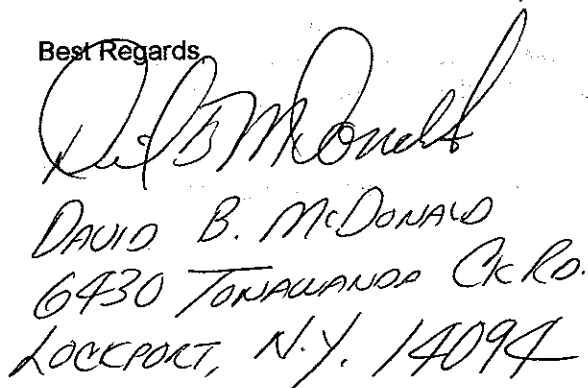 Best Regards,
David B McDonald
DAVID B. McDONALD
6430 TONAWANDA CK RD.
LOCKPORT, N.Y. 14094